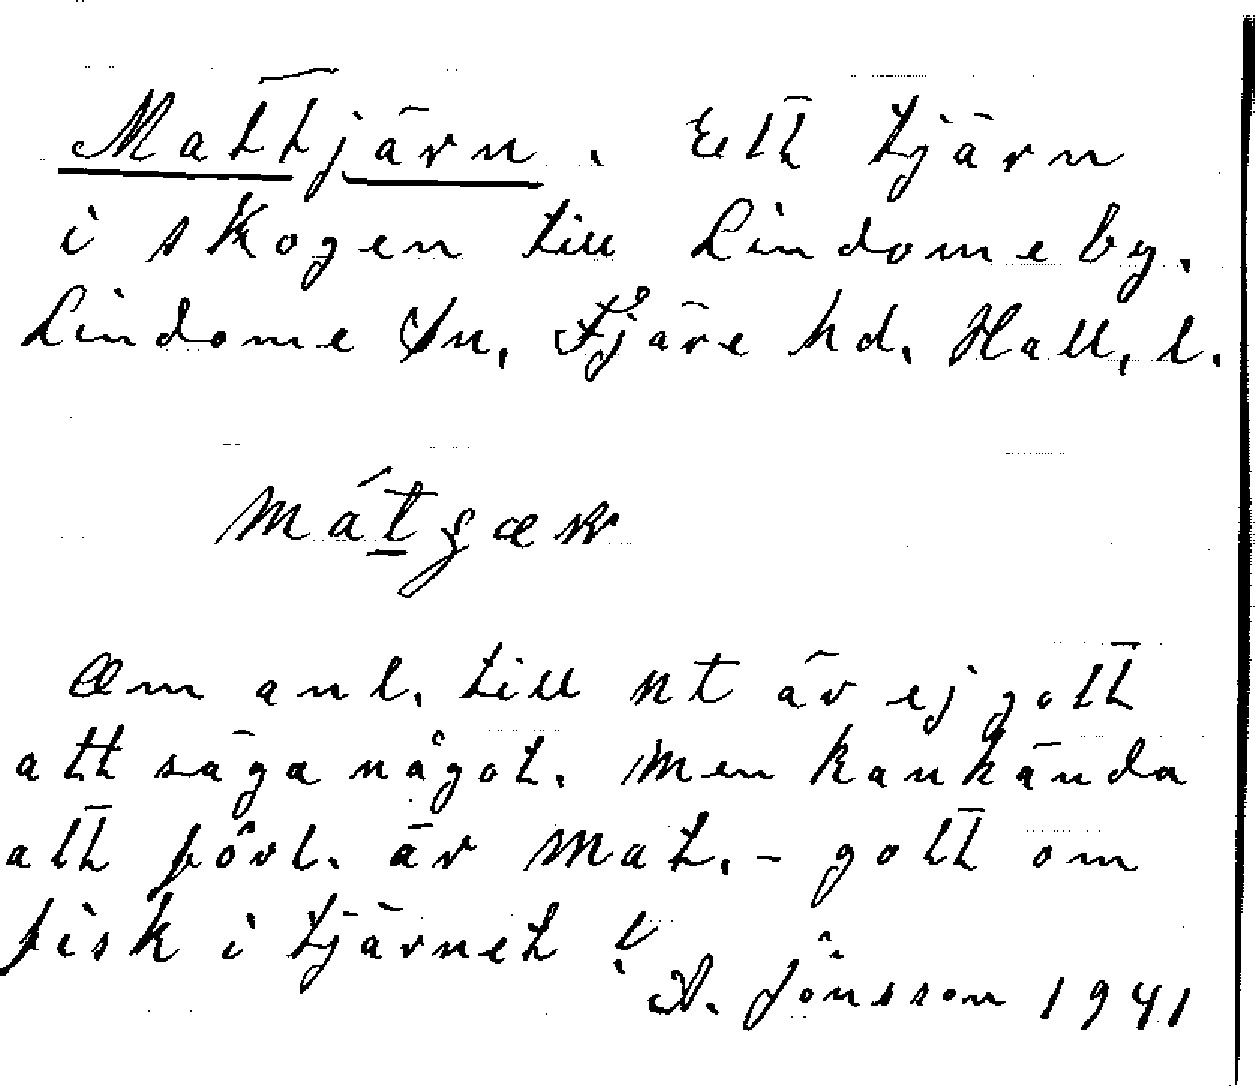 Mattjärn. Ett tjärn
i skogen till Lindome by.
Lindome sn, Fjäre hd. Hall. l.
Om anl. till nt är ej gott
att säga något. Men kankända
att förl. är mat. - gott om
fisk i tjärnet!
A. Jönsson 1941